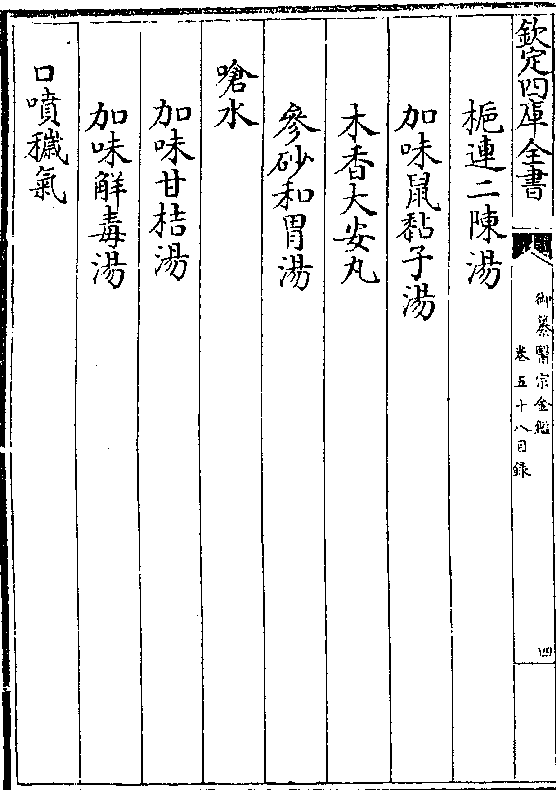 欽定四庫全書
御纂醫宗金鑑
卷五十八目錄
四
梔連二陳湯
加味鼠黏子湯
木香大安丸
參砂和胃湯
嗆水
加味甘桔湯
加味解毒湯
口噴穢氣